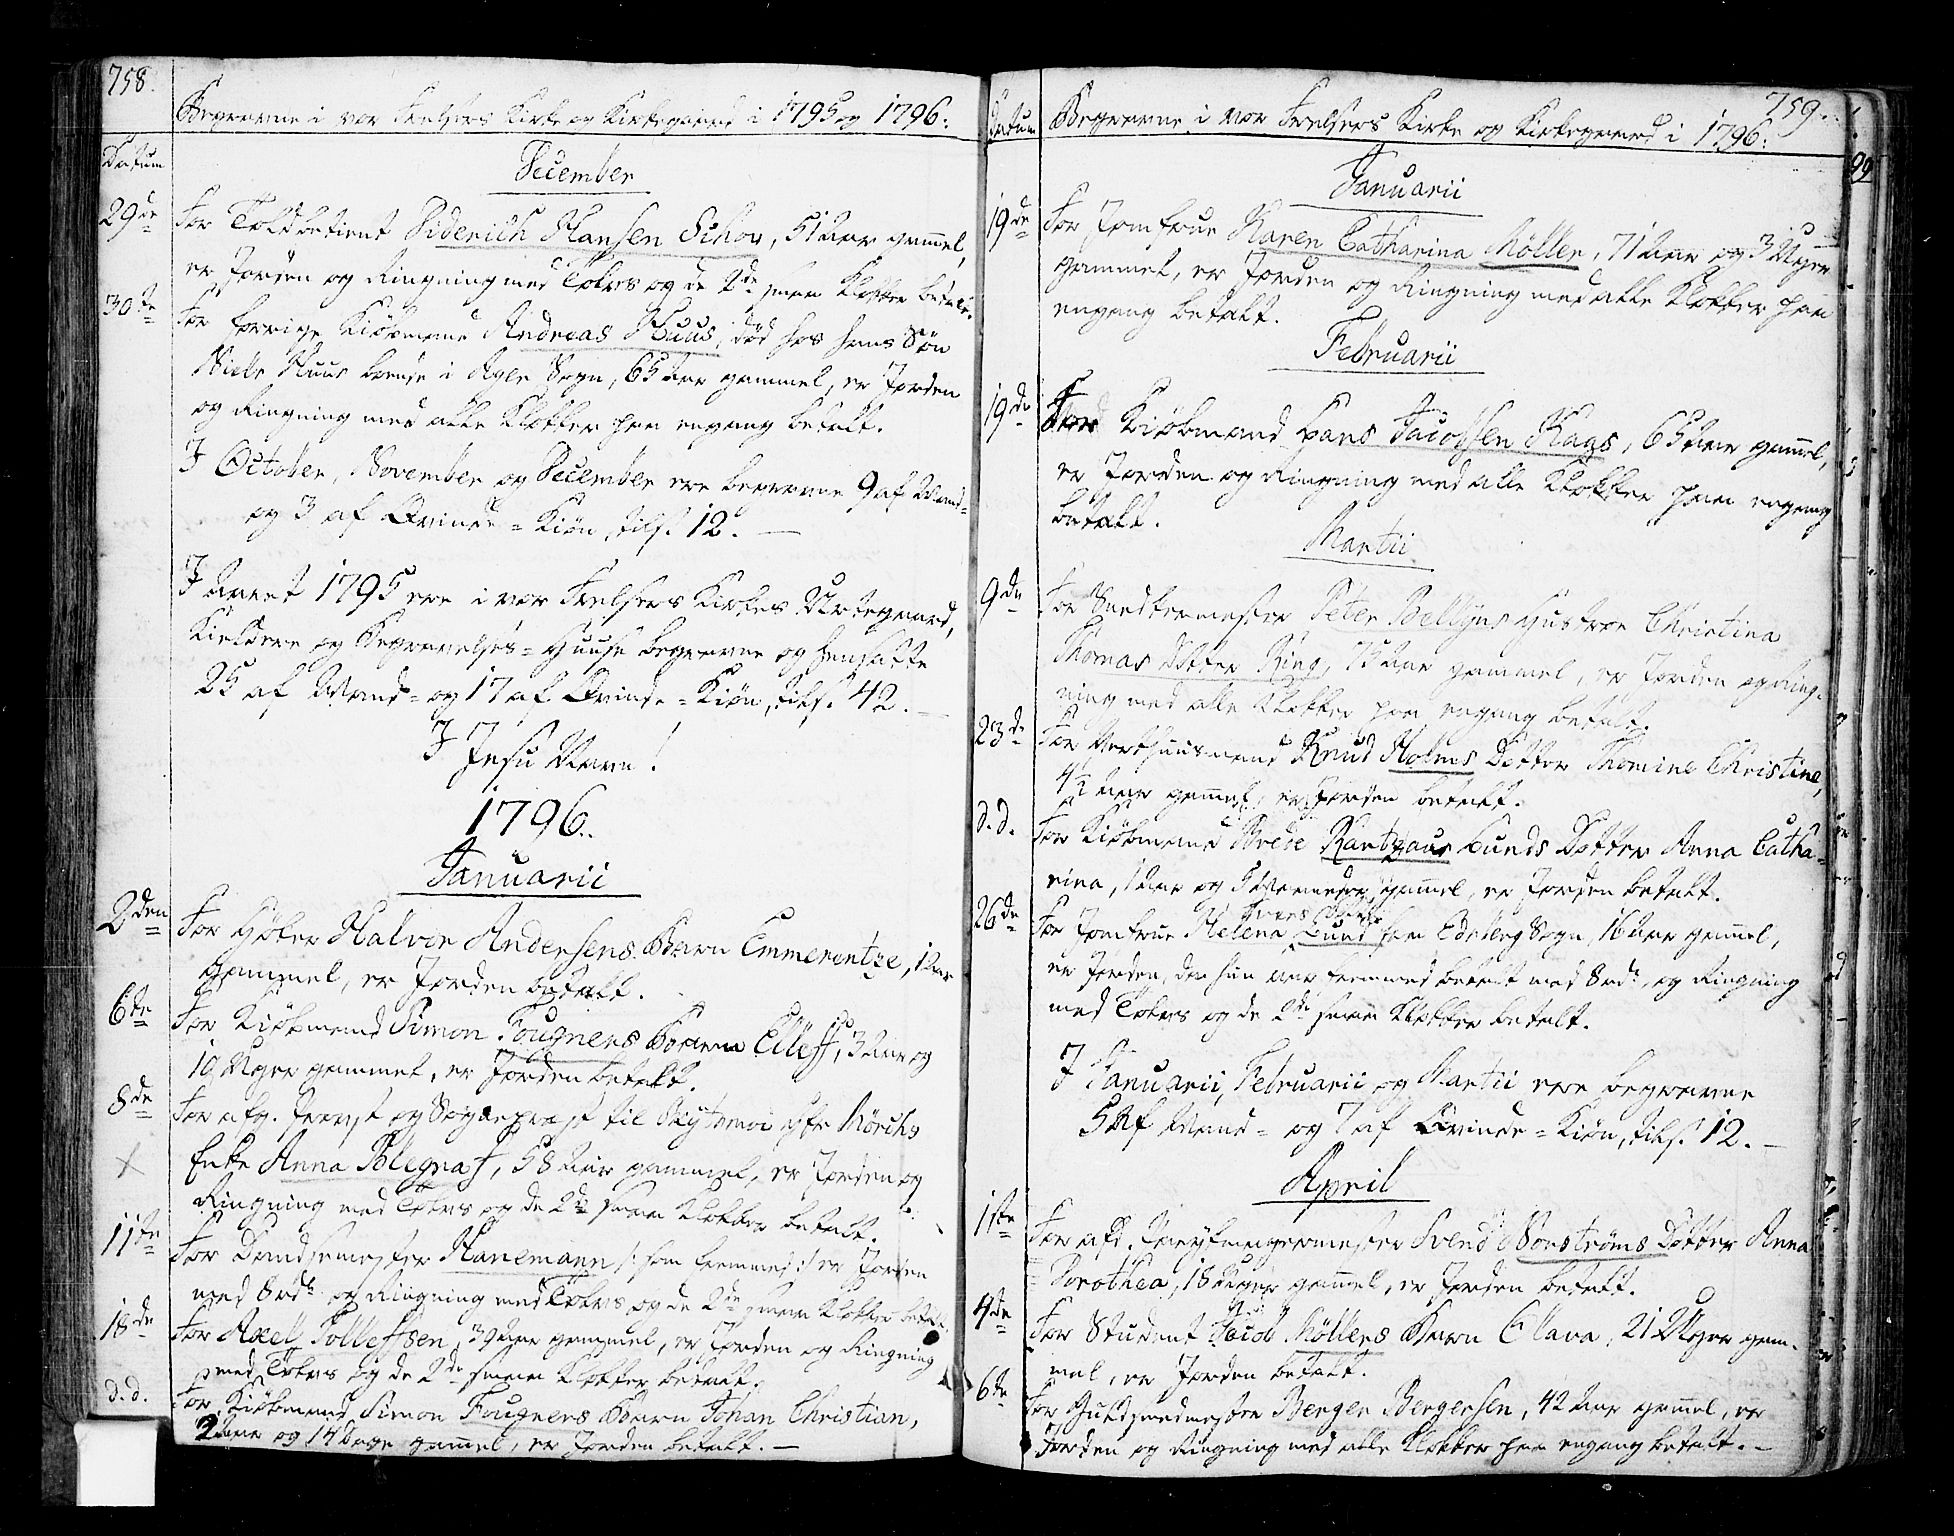 758.
Begravne i vor Frelsers Kirke og Kirkegaard i 1795 og 1796.
Datum
December
29de For Toldbetient Diderich Hansen Schou, 51 Aar gam̄el,
er Jorden og Ringning med Tolvs og de 2de smaa Klokker betalt.
30te For forrige Kiøbmand Andreas Huus, død hos hans Søn
Niels Huus boende i Ager Sogn, 65 Aar gammel, er Jorden
og Ringning med alle Klokker paa engang betalt.
I October, November og December ere begravne 9 af Mand-
og 3 af Qvinde-Kiøn, tils. 12.
I Aaret 1795 ere i vor Frelsers Kirkes Urtegaard,
Kieldere og Begravelses-Huuse begravne og hensatte
25 af Mand- og 17 af Qvinde-Kiøn, tils. 42.
I Jesu Navn!
1796.
Januarii
2den For Høker Halvor Andersens Barn Emmerentze, 1 Aar
gammel, er Jorden betalt.
6te For Kiøbmand Simon Fougners Barn Eilef, 3 Aar og
19 Uger gammel, er Jorden betalt.
8de For afg. Provst og Sognepræst til Skiptvet Mørchs
Enke Anna Blegnaf, 58 Aar gammel, er Jorden og
Ringning med Tolvs og de 2de smaa Klokker betalt.
11te For Dandsemester Hanemann /: som fremmed :/ er Jorden
med 8 rdr og Ringning med Tolvs og de 2de smaa Klokker betalt.
18de For Axel Tollefsen, 39 Aar gammel, er Jorden og Ringning
med Tolvs og de 2de smaa Klokker betalt.
d.d. For Kiøbmand Simon Fougners Barn Johan Christian,
2 Aar og 14 Dage gam̄el, er Jorden betalt.
759.
Datum Begravne i vor Frelsers Kirke og Kirkegaard i 1796.
Januarii
19de For Jomfrue Karen Catharina Møller, 71 Aar og 3 Uger
gammel, er Jorden og Ringning med alle Klokker paa
engang betalt.
Februarii
19de For Kiøbmand Hans Jacobsen Kaas, 65 Aar gam̄el,
er Jorden og Ringning med alle Klokker paa engang
betalt.
Martii
9de For Snedkermester Peter Bellyus Hustroe Christina
Thomas Dotter Ring, 75 Aar gammel, er Jorden og Ring-
ning med alle Klokker paa engang betalt.
23de For Værthuusmand Knud Holms Dotter Thomine Christine,
4½ Aar gam̄el, er Jorden betalt.
d.d. For Kiøbmand Brede Rantzaus Lunds Dotter Anna Catha-
rina, 1 Aar og 5 Maaneder gam̄el, er Jorden betalt.
26de For Jomfrue Helena Lund fra Edsberg Sogn, 16 Aar gam̄el,
er Jorden, da hun var fremmed betalt med 8 rdr, og Ringning
med Tolvs og de 2de smaa Klokker betalt.
I Januarii, Februarii og Martii ere begravne
5 af Mand- og 7 af Qvinde-Kiøn, tils. 12.
April
1ste For afd. Svend Norstrøms Dotter Anna
Dorothea, 18 Uger gam̄el, er Jorden betalt.
4de For Student Jacob Møllers Barn Clara, 21 Uger gam-
mel, er Jorden betalt.
6te For Guldsmedmester Berger Bergersen, 42 Aar gam̄el, er
Jorden og Ringning med alle Klokker paa engang betalt.